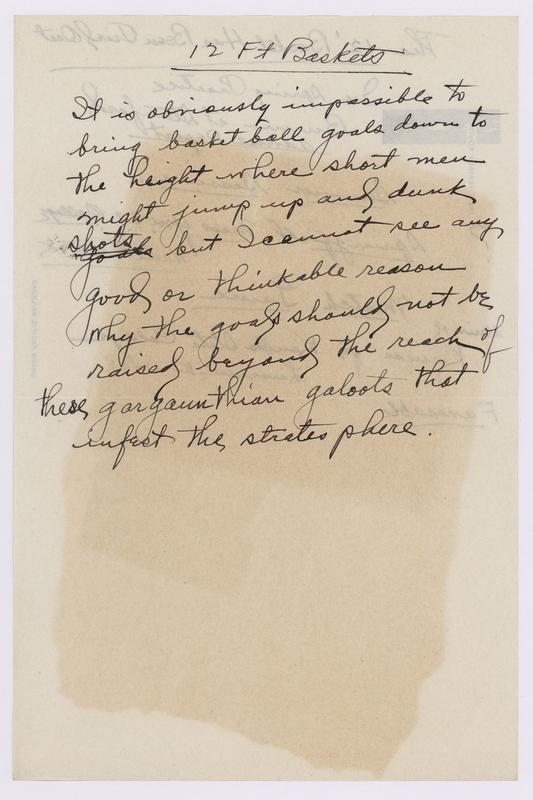 12 Ft Baskets
It is obviously impossible to
bring basket ball goals down to
the height where short men
might jump up and dunk
shots goals but I cannot see any
good or thinkable reason
why the goals should not be
raised beyond the reach of
these gargaunthian galoots that
infest the stratesphere.